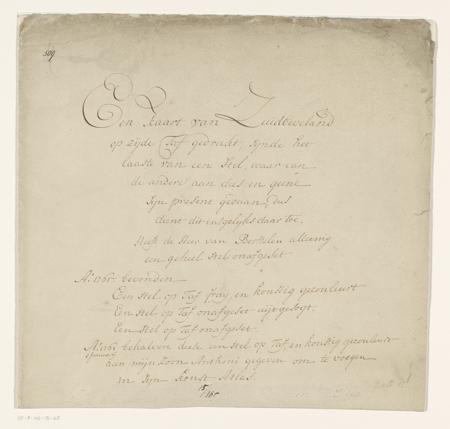 509
Een Kaart van Zuidbeveland
op zijde Taf gedrukt, zynde het
laaste van een stel, waar van
de andere aan dees en geene
zyn present gedaan, dus
dient dit insgelyks daar toe.
Heeft de Heer van Borselen alleenig
een geheel stel onafgeset
Ao. 1761. bevonden
Een stel op Taf fray, en konstig gecouleurt
Een stel op Taf onafgeset
Een stel op Taf onafgeset.
behalven deese een stel op Taf en konstig gecouleurt
aan mijn Zoon Anthoni gegeven om te voegen
in zyn Konst Atlas.
15/165